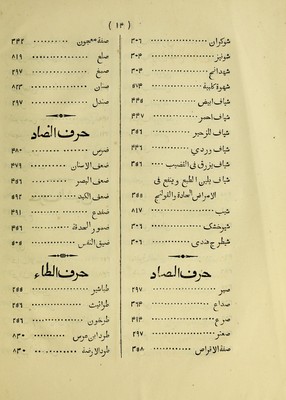 ( ١٣ )
شوكران ٣٠٦
شونيز ٣٠٣
شهدانج ٣٠٣
شهوة كلبية ٥٧٣
شياف ابيض ٣٣٥
شياف احمر ٣٣٧
شياف للزحير ٣٥٦
شياف وردي ٣٣٦
شياف يزرق في القضيب ٣٥٦
شياف يلين الطبع وينفع في
الامراض الحادة والقولنج ٣٥٥
شيب ٨١٧
شيرخشك ٣٠٦
شيطرج هندي ٣٠٦
حرف الصاد
صبر ٢٩٧
صداع
صرع
صعتر ٢٩٧
صفة الاقراص ٣٥٨
صفة معجون
صلع ٨١٩
صمغ ٢٩٧
صنان ٨٢٣
صندل ٢٩٧
حرف الضاد
ضرس ٣٨٠
ضعف الاسنان ٣٧٩
ضعف البصر ٣٥٦
ضعف الكبد ٥٩٢
ضفدع ٣٩١
ضمور الحدقة ٣٥٦
ضيق النفس ٥٠٥
حرف الطاء
طباشير ٢٥٥
طراثيث ٢٥٦
طرخون ٢٥٦
طرد ابن عرس ٨٣٠
طرد الارضة ٨٣٠